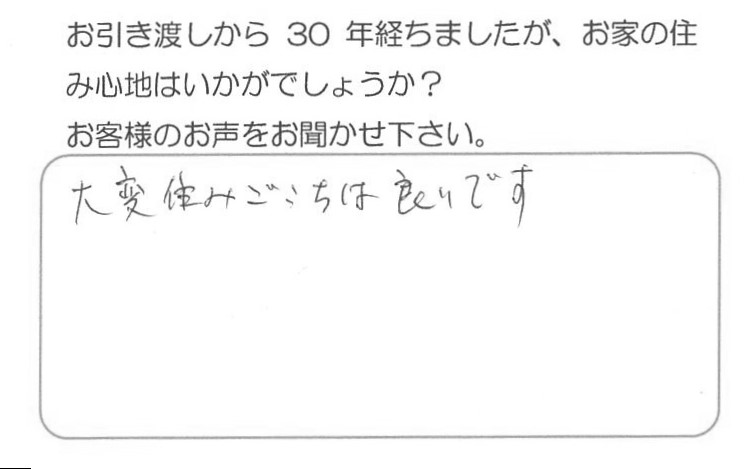 お引き渡しから 30 年経ちましたが、お家の住
み心地はいかがでしょうか？
お客様のお声をお聞かせ下さい。
大変住みごこちは良いです